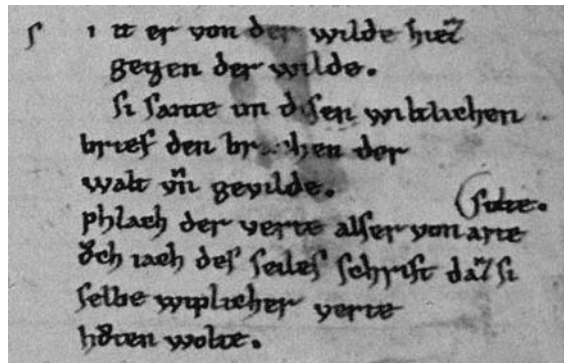 ſ i tt er von der wilde hiez
gegen der wilde.
ſi ſante im diſen wiltlichen
brief den br..chen der
walt vn̄ gevilde.
phlach der verte alſer von arte (ſolte.
ŏch iach deſ ſeileſ ſchrift daz ſi
ſelbe wiplicher verte
hŏten wolte.